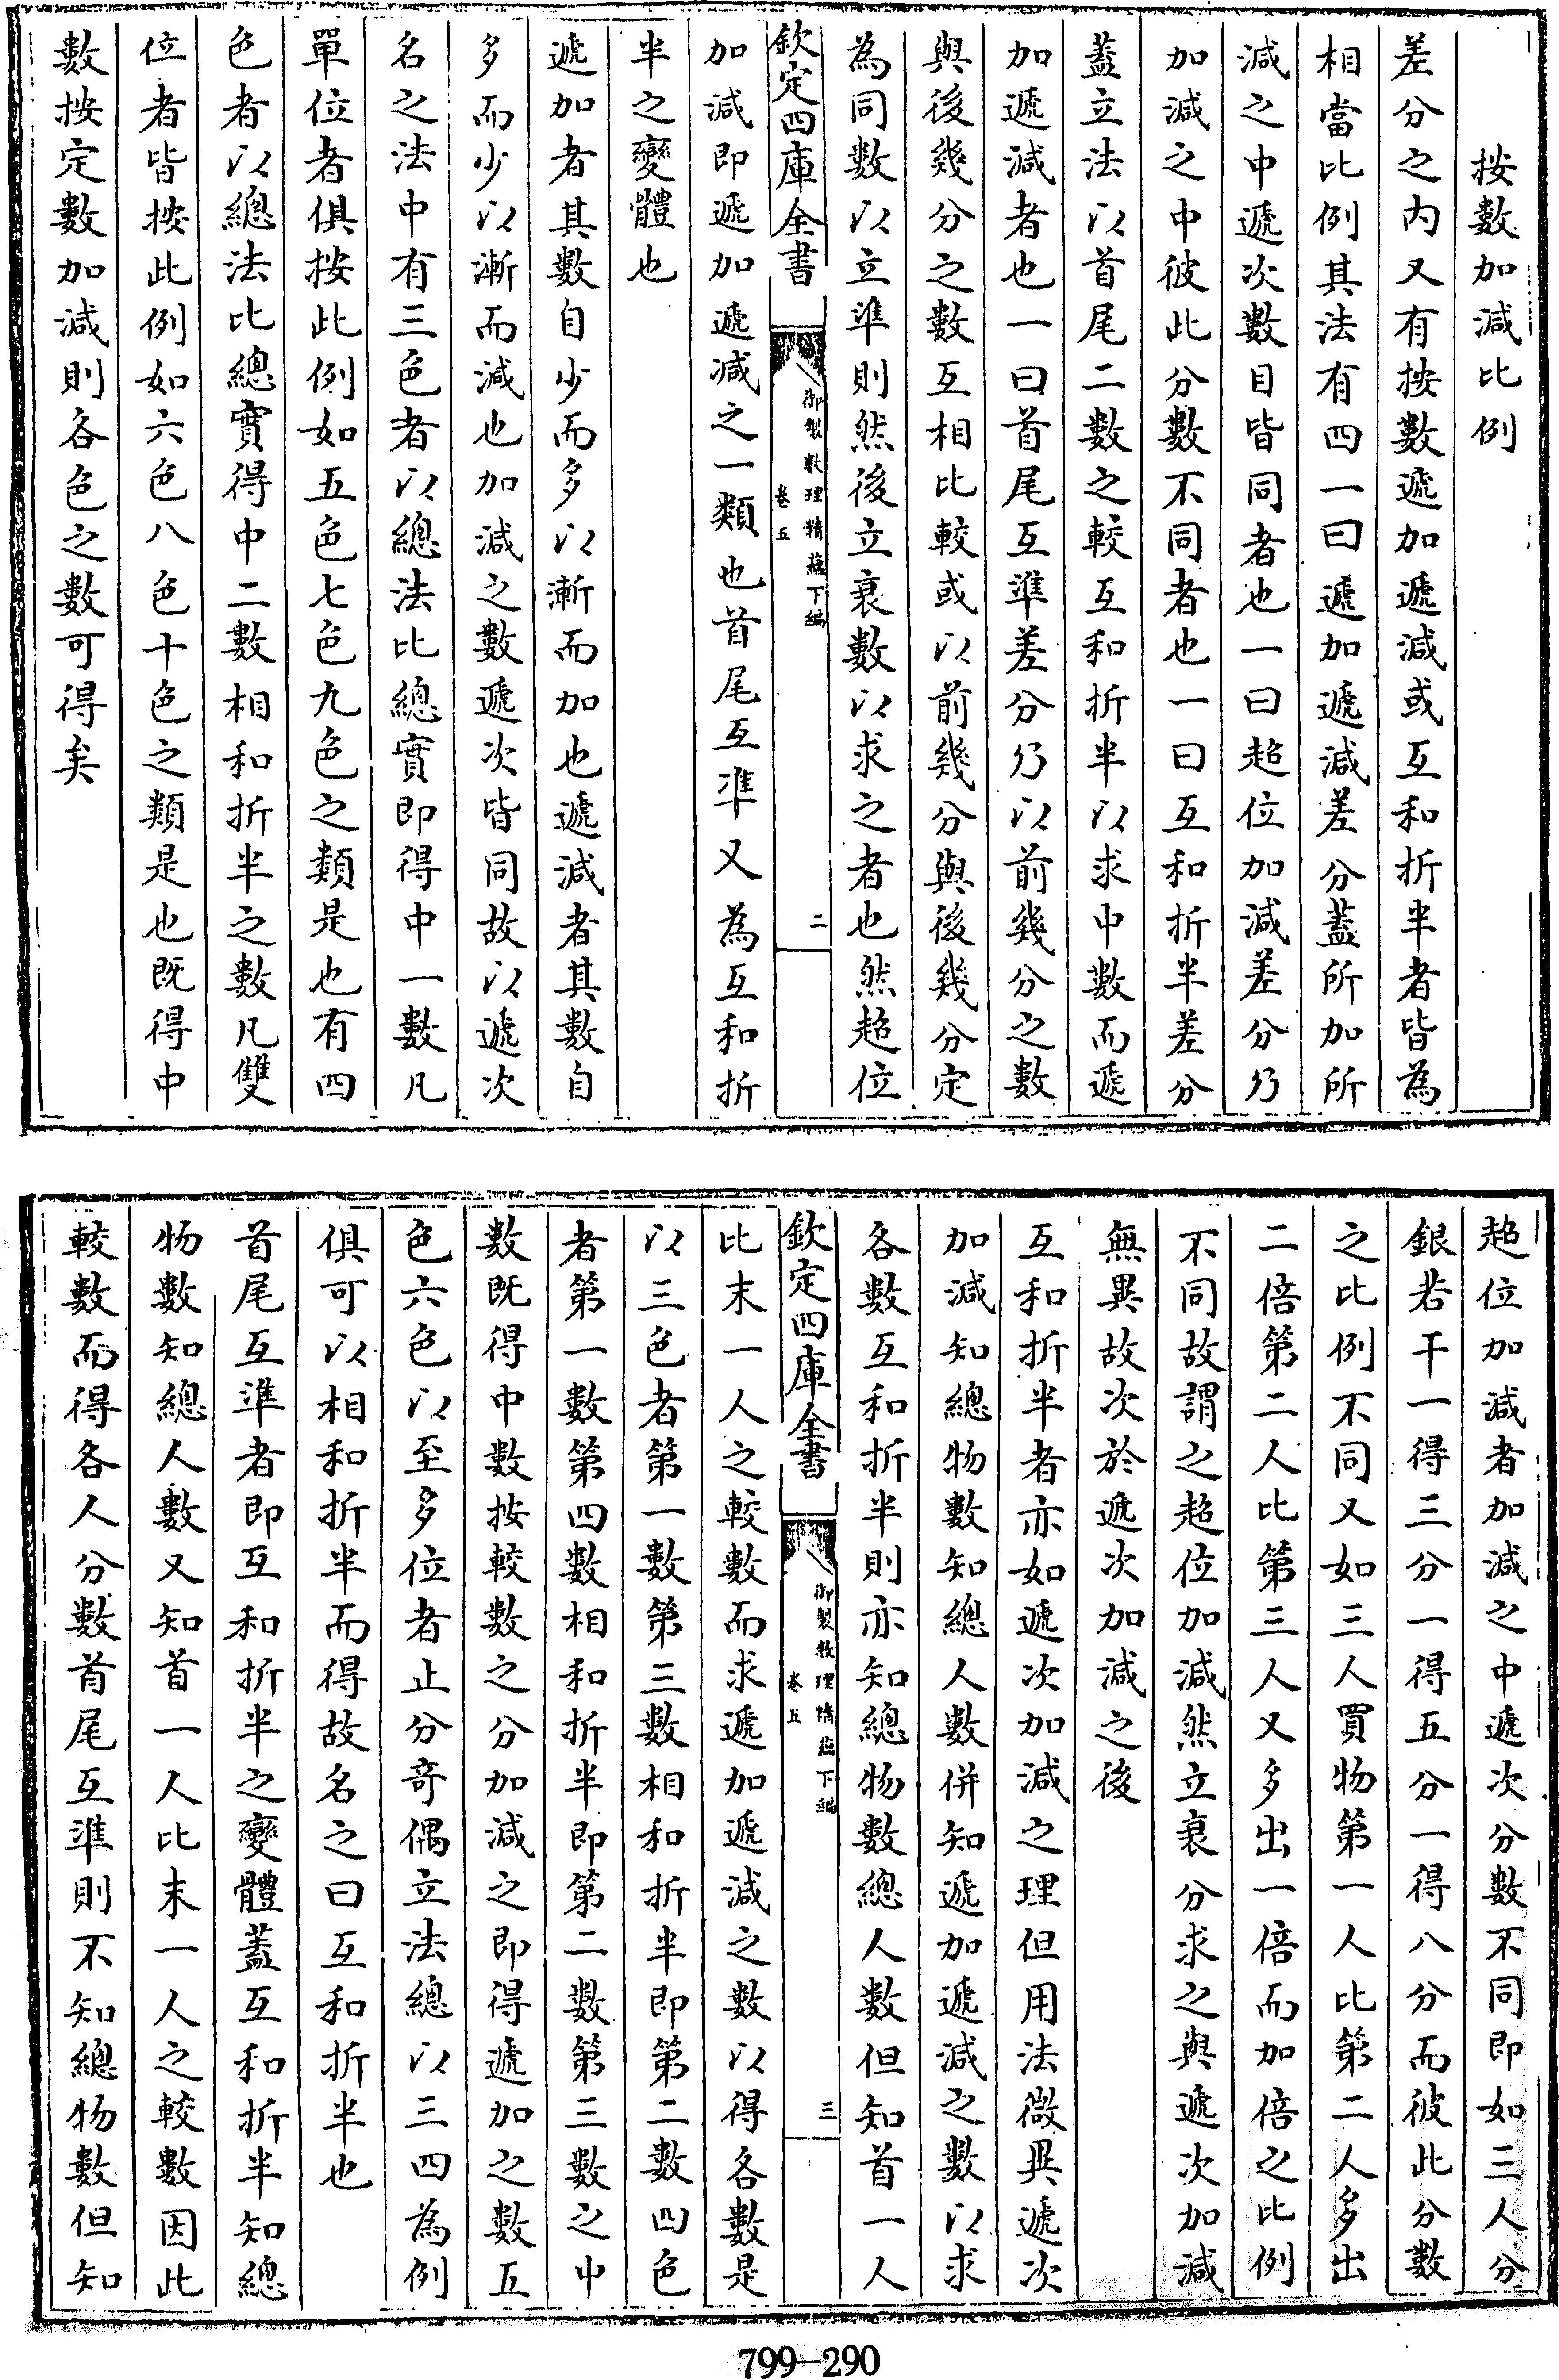 按數加減比例
差分之内又有按數遞加遞減或互和折半者皆為
相當比例其法有四一曰遞加遞減差分蓋所加所
減之中遞次數目皆同者也一曰超位加減差分乃
加減之中彼此分數不同者也一曰互和折半差分
蓋立法以首尾二數之較互和折半以求中數而遞
加遞減者也一曰首尾互準差分乃以前幾分之數
與後幾分之數互相比較或以前幾分與後幾分定
為同數以立準則然後立衰數以求之者也然超位
欽定四庫全書
御製數理精蘊下編
卷五
二
加減即遞加遞減之一類也首尾互準又為互和折
半之變體也
遞加者其數自少而多以漸而加也遞減者其數自
多而少以漸而減也加減之數遞次皆同故以遞次
名之法中有三色者以總法比總實即得中一數凡
單位者俱按此例如五色七色九色之類是也有四
色者以總法比總實得中二數相和折半之數凡雙
位者皆按此例如六色八色十色之類是也既得中
數按定數加減則各色之數可得矣
超位加減者加減之中遞次分數不同即如三人分
銀若干一得三分一得五分一得八分而彼此分數
之比例不同又如三人買物第一人比第二人多出
二倍第二人比第三人又多出一倍而加倍之比例
不同故謂之超位加減然立衰分求之與遞次加減
無異故次於遞次加減之後
互和折半者亦如遞次加減之理但用法微異遞次
加減知總物數知總人數併知遞加遞減之數以求
各數互和折半則亦知總物數總人數但知首一人
欽定四庫全書
御製數理精蘊下編
卷五
三
比末一人之較數而求遞加遞減之數以得各數是
以三色者第一數第三數相和折半即第二數四色
者第一數第四數相和折半即第二數第三數之中
數既得中數按較數之分加減之即得遞加之數五
色六色以至多位者止分奇偶立法總以三四為例
俱可以相和折半而得故名之曰互和折半也
首尾互準者即互和折半之變體蓋互和折半知總
物數知總人數又知首一人比末一人之較數因此
較數而得各人分數首尾互準則不知總物數但知
799-290